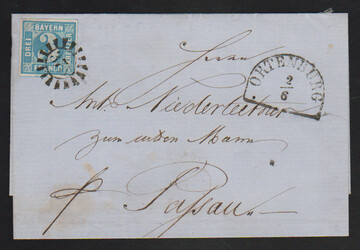 BAYERN
DREI
3
ORTENBURG
2
6
Herrn
Ant. Niederleitner
zum wilden Mann
Passau